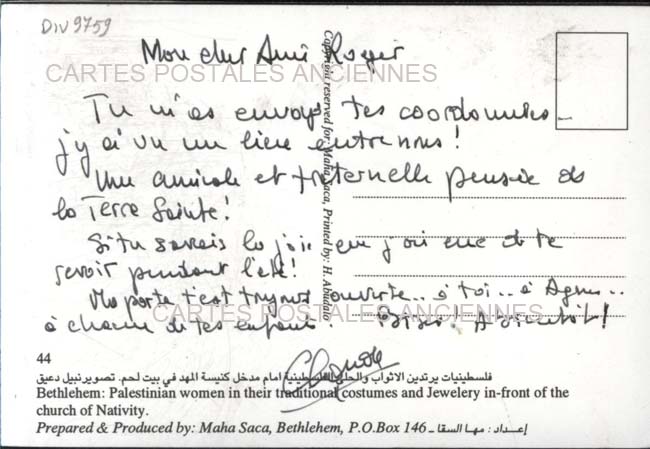 DIV 9759
Mon cher Ami Roger
CARTES POSTALES ANCIENNES
Tu m'as envoyé tes coordonnées
j'y ai vu un lien entre nous!
Une amicale et fraternelle pensée de
la Terre Sainte!
Si tu savais la joie que j'ai eue de te
revoir pendant l'été!
Ma porte t'est toujours ouverte.. à toi.. à Agnès..
CARTES POSTALES ANCIENNES
à chacun de tes enfants. Bises! A bientôt!
Copyright reserved for: Maha Saca, Printed by: H. Abudalo
44
فلسطينيات يرتدين الاثواب والحلي الفلسطينية امام مدخل كنيسة المهد في بيت لحم. تصوير نبيل دعيق
Bethlehem: Palestinian women in their traditional costumes and Jewelery in-front of the
church of Nativity.
Prepared & Produced by: Maha Saca, Bethlehem, P.O.Box 146 - إعداد: مها السقا